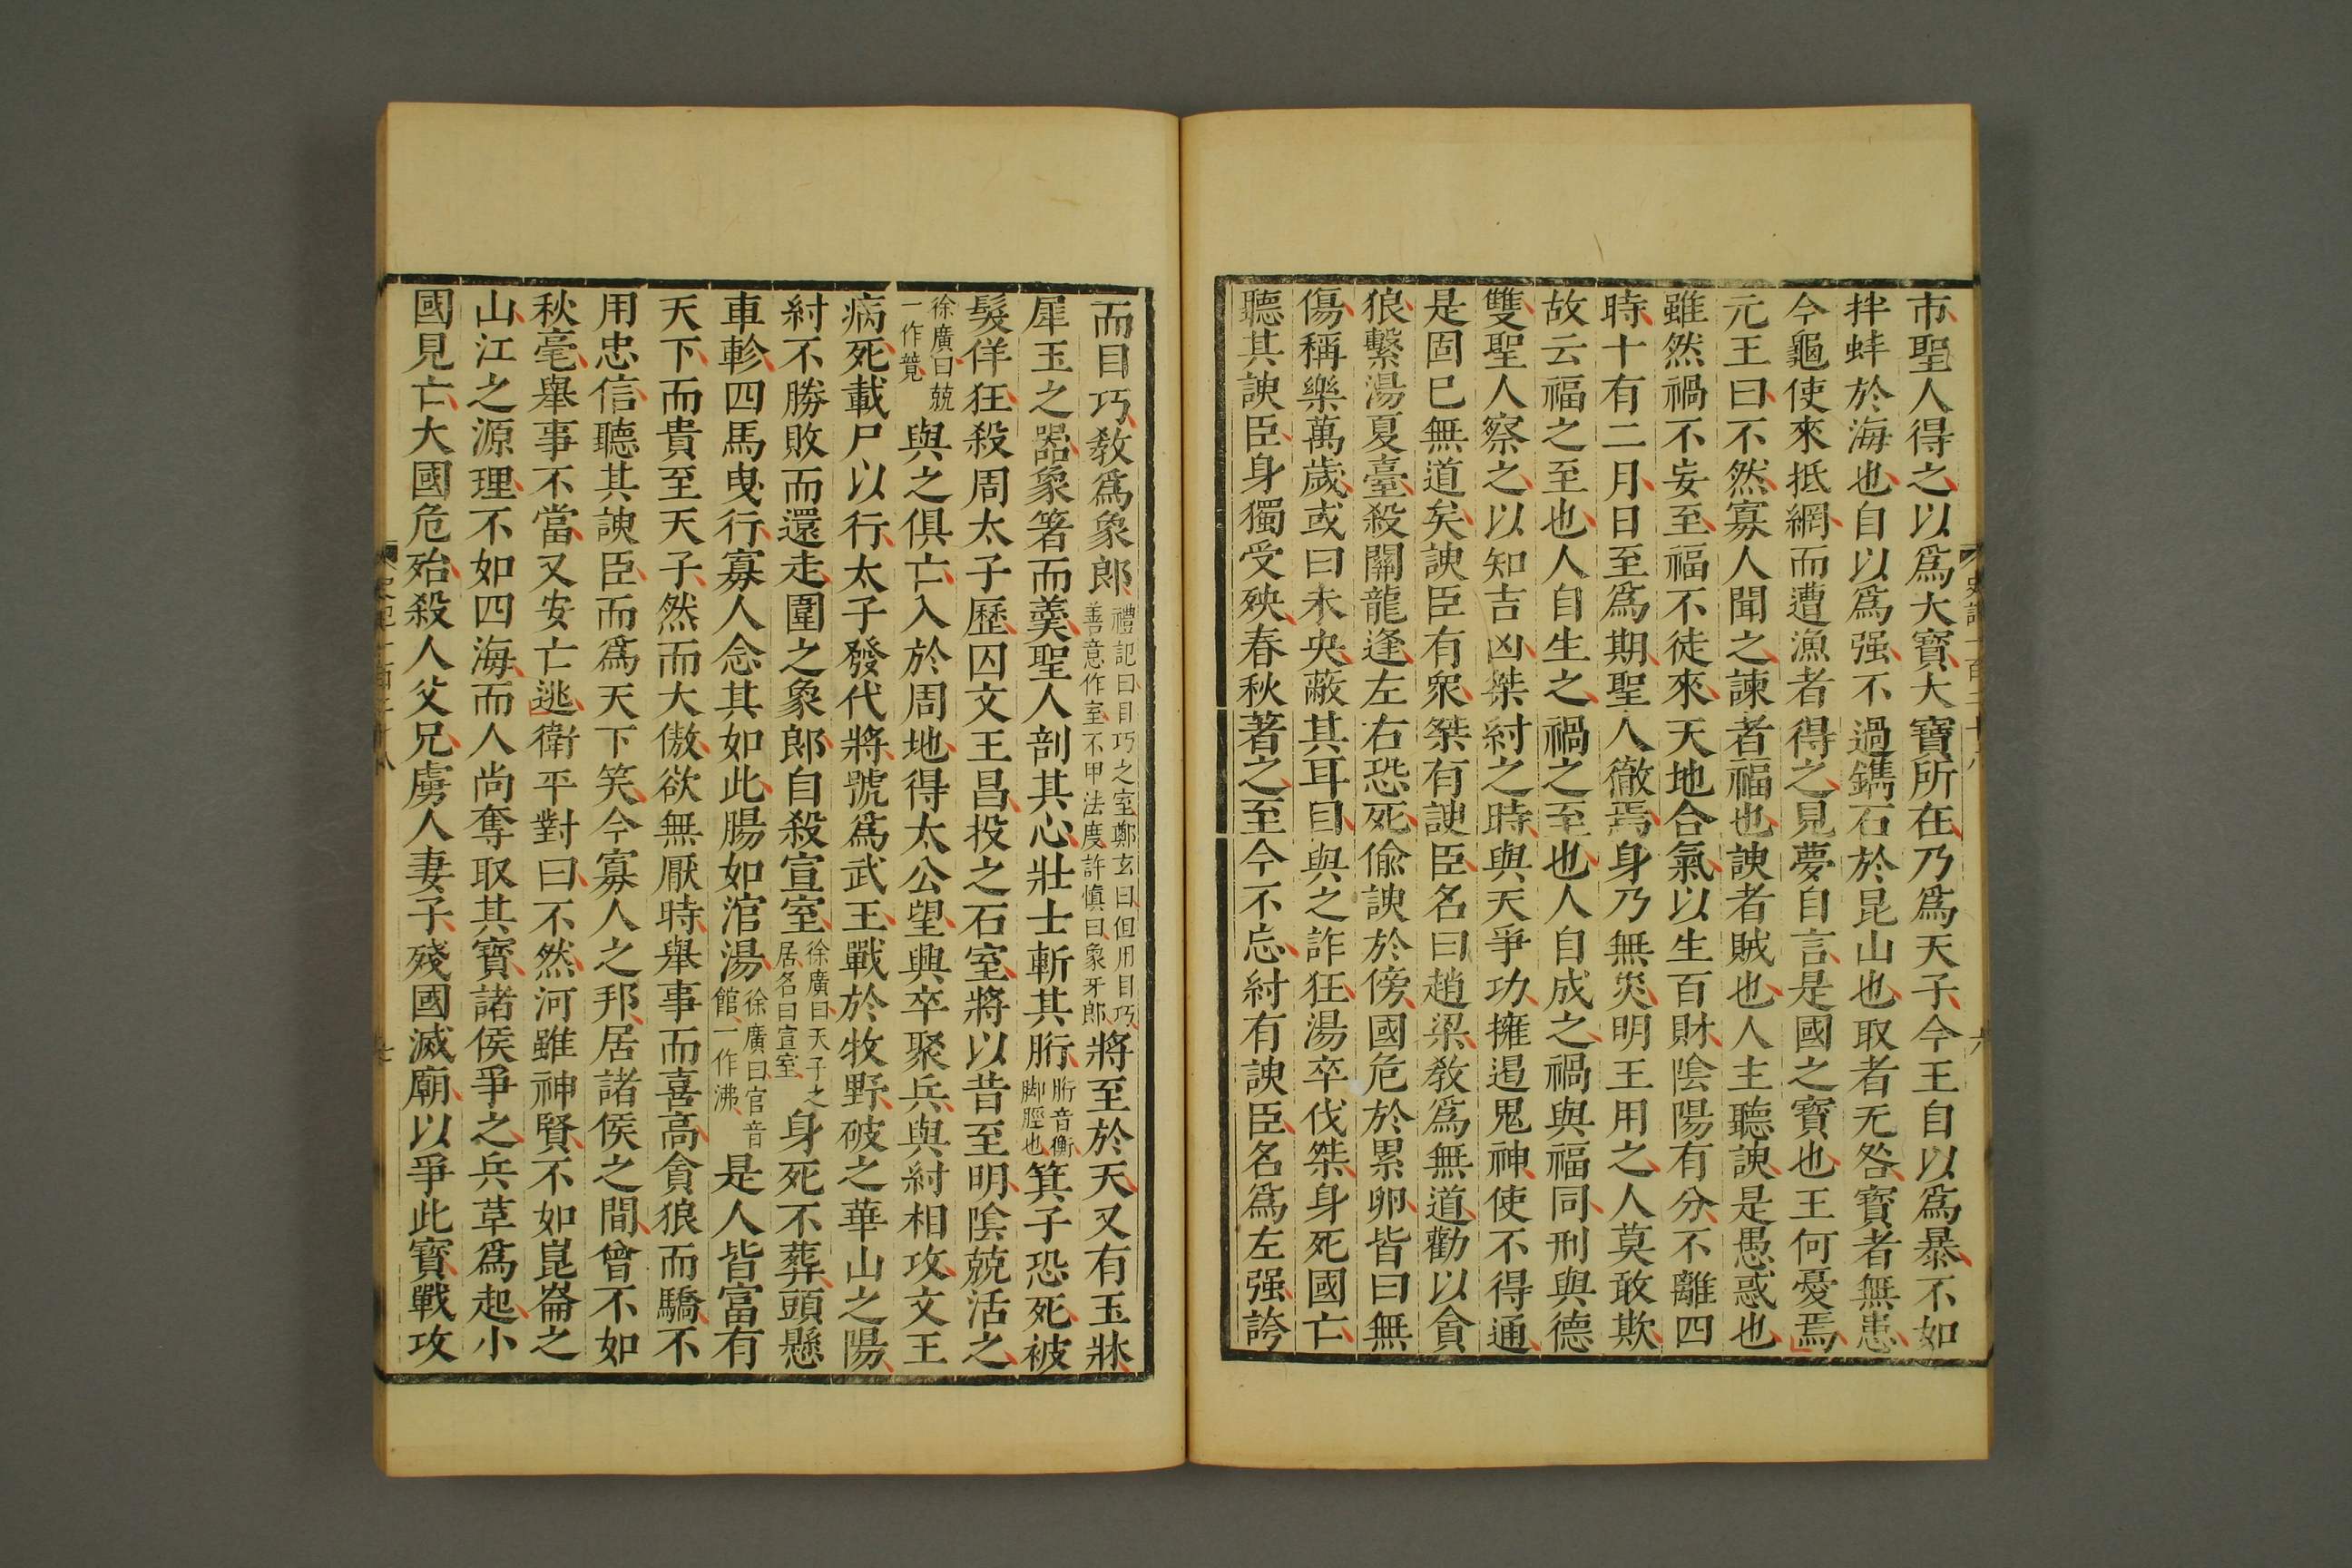 市聖人得之以爲大寶大寶所在乃爲天子今王自以爲暴不如
拌蚌於海也自以爲强不過鐫石於昆山也取者无咎寶者無患
今龜使來抵網而遭漁者得之見夢自言是國之寶也王何憂焉
元王曰不然寡人聞之諫者福也諛者賊也人主聽諛是愚惑也
雖然禍不妄至福不徒來天地合氣以生百財陰陽有分不離四
時十有二月日至爲期聖人徹焉身乃無災明王用之人莫敢欺
故云福之至也人自生之禍之至也人自成之禍與福同刑與德
雙聖人察之以知吉凶桀紂之時與天爭功擁遏鬼神使不得通
是固已無道矣諛臣有衆桀有諛臣名曰趙梁教爲無道勸以貪
狼繫湯夏臺殺關龍逢左右恐死偷諛於傍國危於累卵皆曰無
傷稱樂萬歲或曰未央蔽其耳目與之詐狂湯卒伐桀身死國亡
聽其諛臣身獨受殃春秋著之至今不忘紂有諛臣名爲左强誇
史記一百二十八
六
而目巧教爲象郎禮記曰目巧之室鄭玄曰但用目巧善意作室不甲法度許慎曰象牙郎將至於天又有玉牀
犀玉之器象箸而羹聖人剖其心壯士斬其胻胻音衡脚脛也箕子恐死被
髮佯狂殺周太子歷囚文王昌投之石室將以昔至明陰兢活之
徐廣曰兢一作競與之俱亡入於周地得太公望興卒聚兵與紂相攻文王
病死載尸以行太子發代將號爲武王戰於牧野破之華山之陽
紂不勝敗而還走圍之象郎自殺宣室徐廣曰天子之居名曰宣室身死不葬頭懸
車軫四馬曳行寡人念其如此腸如涫湯徐廣曰官音館一作沸是人皆富有
天下而貴至天子然而大傲欲無厭時舉事而喜高貪狼而驕不
用忠信聽其諛臣而爲天下笑今寡人之邦居諸侯之間曾不如
秋毫舉事不當又安亡逃衛平對曰不然河雖神賢不如崑崙之
山江之源理不如四海而人尚奪取其寶諸侯爭之兵革爲起小
國見亡大國危殆殺人父兄虜人妻子殘國滅廟以爭此寶戰攻
七